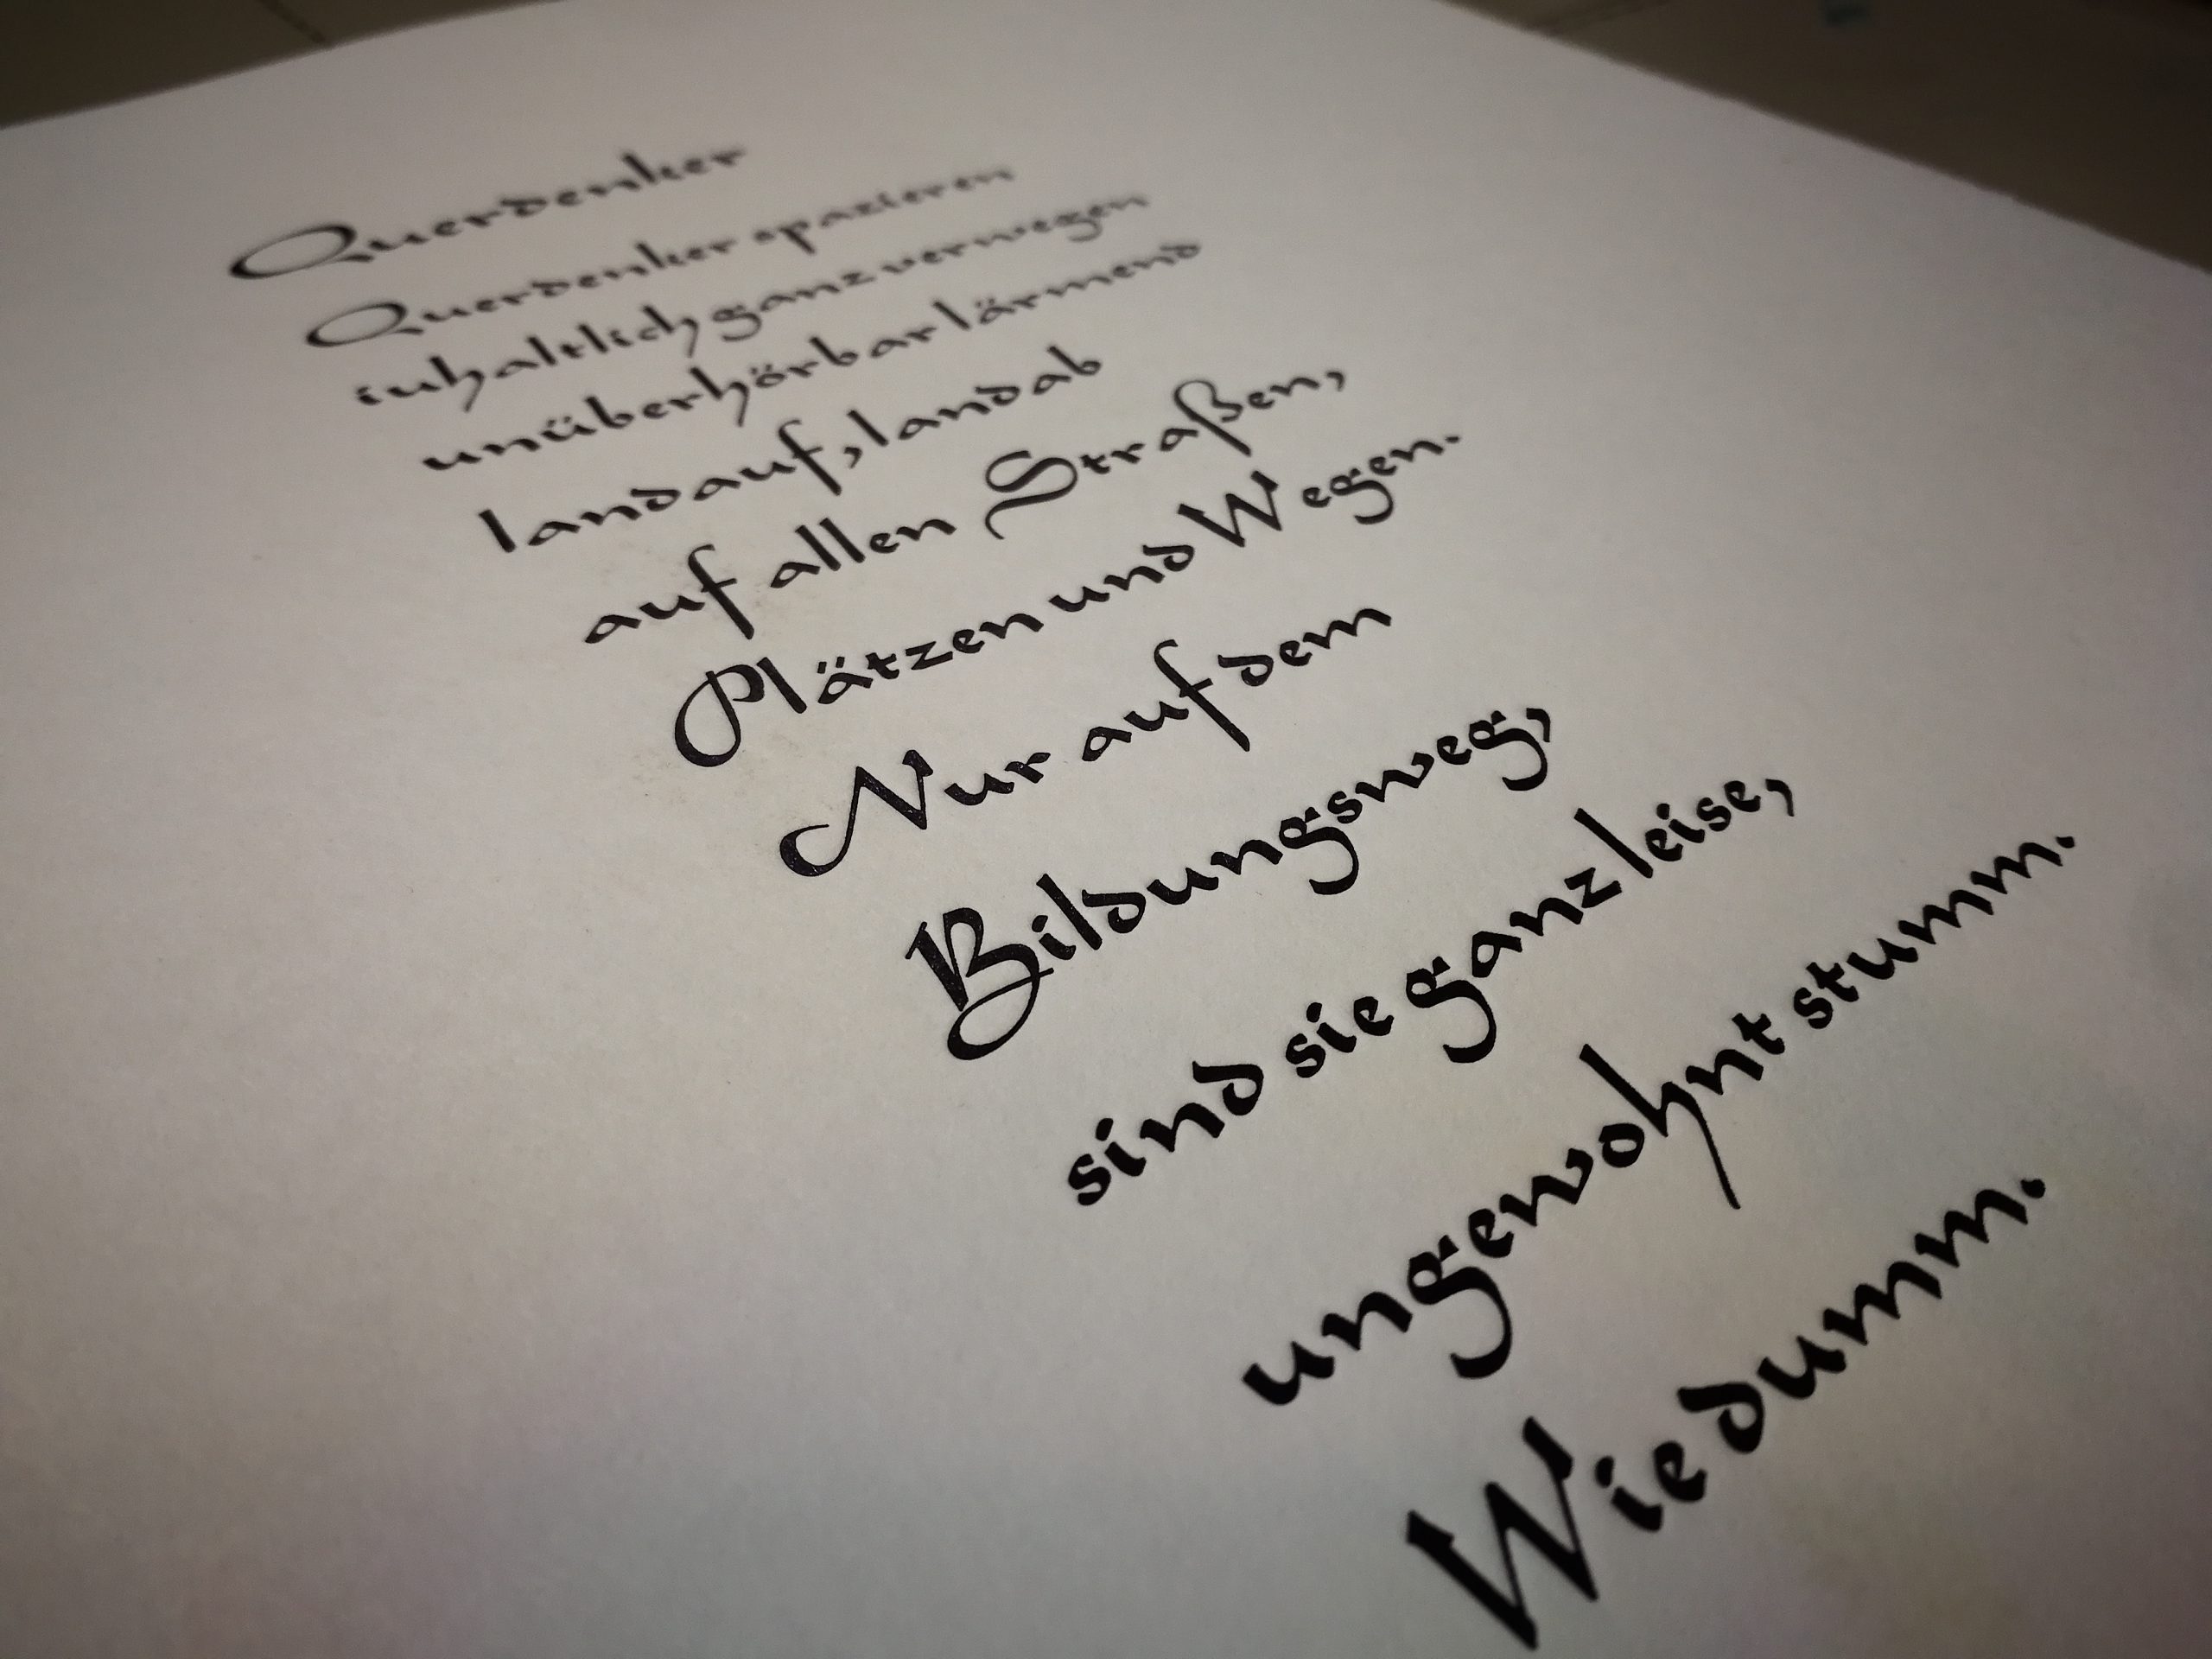 Querdenker
Querdenker spazieren
inhaltlich ganz verwegen
unüberhörbar lärmend
landauf, landab
auf allen Straßen,
Plätzen und Wegen.
Nur auf dem
Bildungsweg,
sind sie ganz leise,
ungewohnt stumm.
Wie dumm.